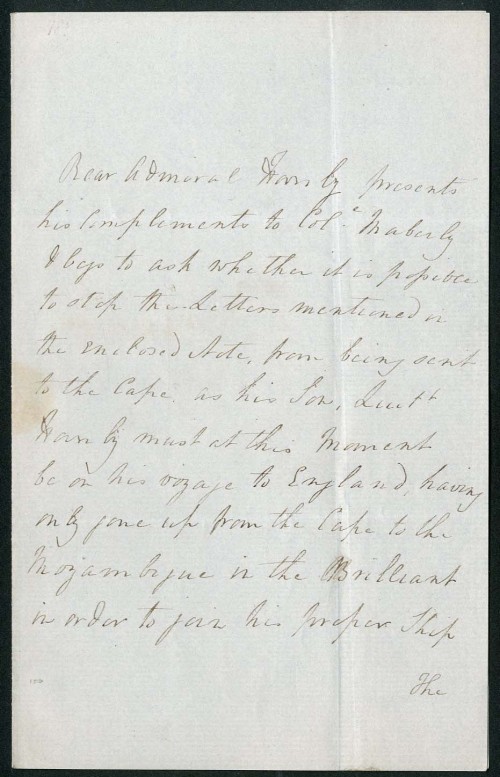 Rear Admiral Hornby presents
his Compliments to Col.l Maberly
& begs to ask whether it is possible
to stop the Letters mentioned in
the enclosed Note, from being sent
to the Cape, as his Son, Lieutt
Hornby must at this Moment
be on his voyage to England, having
only gone up from the Cape to the
Mozambique in the Brilliant
in order to join his proper Ship
The